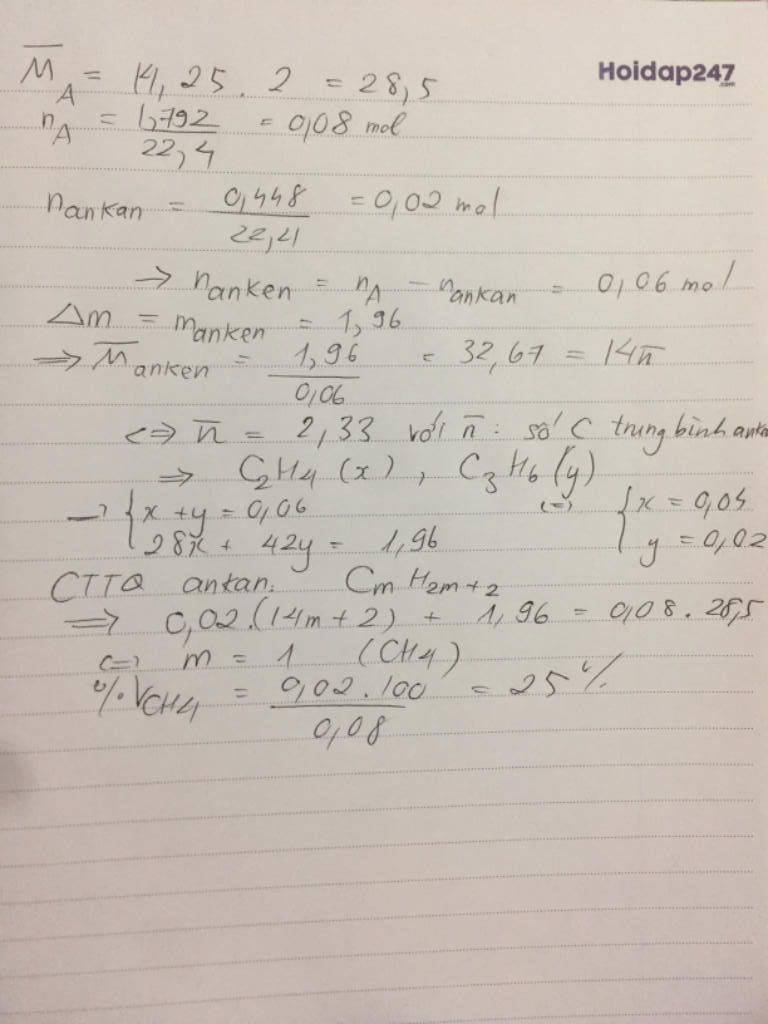 Hoidap247
.com
M̅_A = 14,25 . 2 = 28,5
n_A = 1,792 / 22,4 = 0,08 mol
n_ankan = 0,448 / 22,4 = 0,02 mol
→ n_anken = n_A - n_ankan = 0,06 mol
Δm = m_anken = 1,96
⇒ M̅_anken = 1,96 / 0,06 = 32,67 = 14n̅
⇔ n̅ = 2,33 với n̅: số C trung bình anke
⇒ C2H4 (x) , C3H6 (y)
→ { x + y = 0,06 ⇔ { x = 0,04
28x + 42y = 1,96 y = 0,02
CTTQ ankan: CmH2m+2
⇒ 0,02.(14m + 2) + 1,96 = 0,08 . 28,5
⇔ m = 1 (CH4)
%V_CH4 = 0,02.100 / 0,08 = 25%